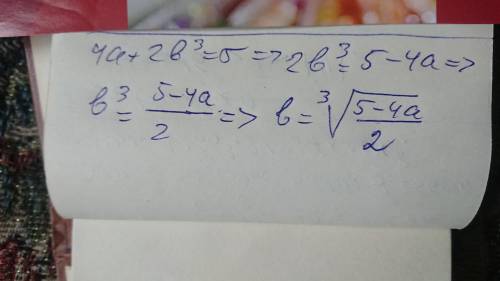 4a+2b³=5=>2b³=5-4a=>
b³=\frac{5-4a}{2}=> b=\sqrt[3]{\frac{5-4a}{2}}